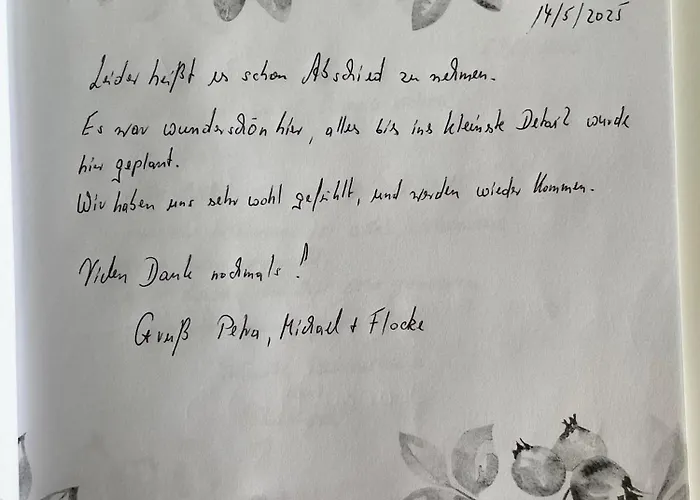 14/5/2025
Leider heißt es schon Abschied zu nehmen.
Es war wunderschön hier, alles bis ins kleinste Detail wurde
hier geplant.
Wir haben uns sehr wohl gefühlt, und werden wieder kommen.
Vielen Dank nochmals!!
Gruß Petra, Michael + Flocke